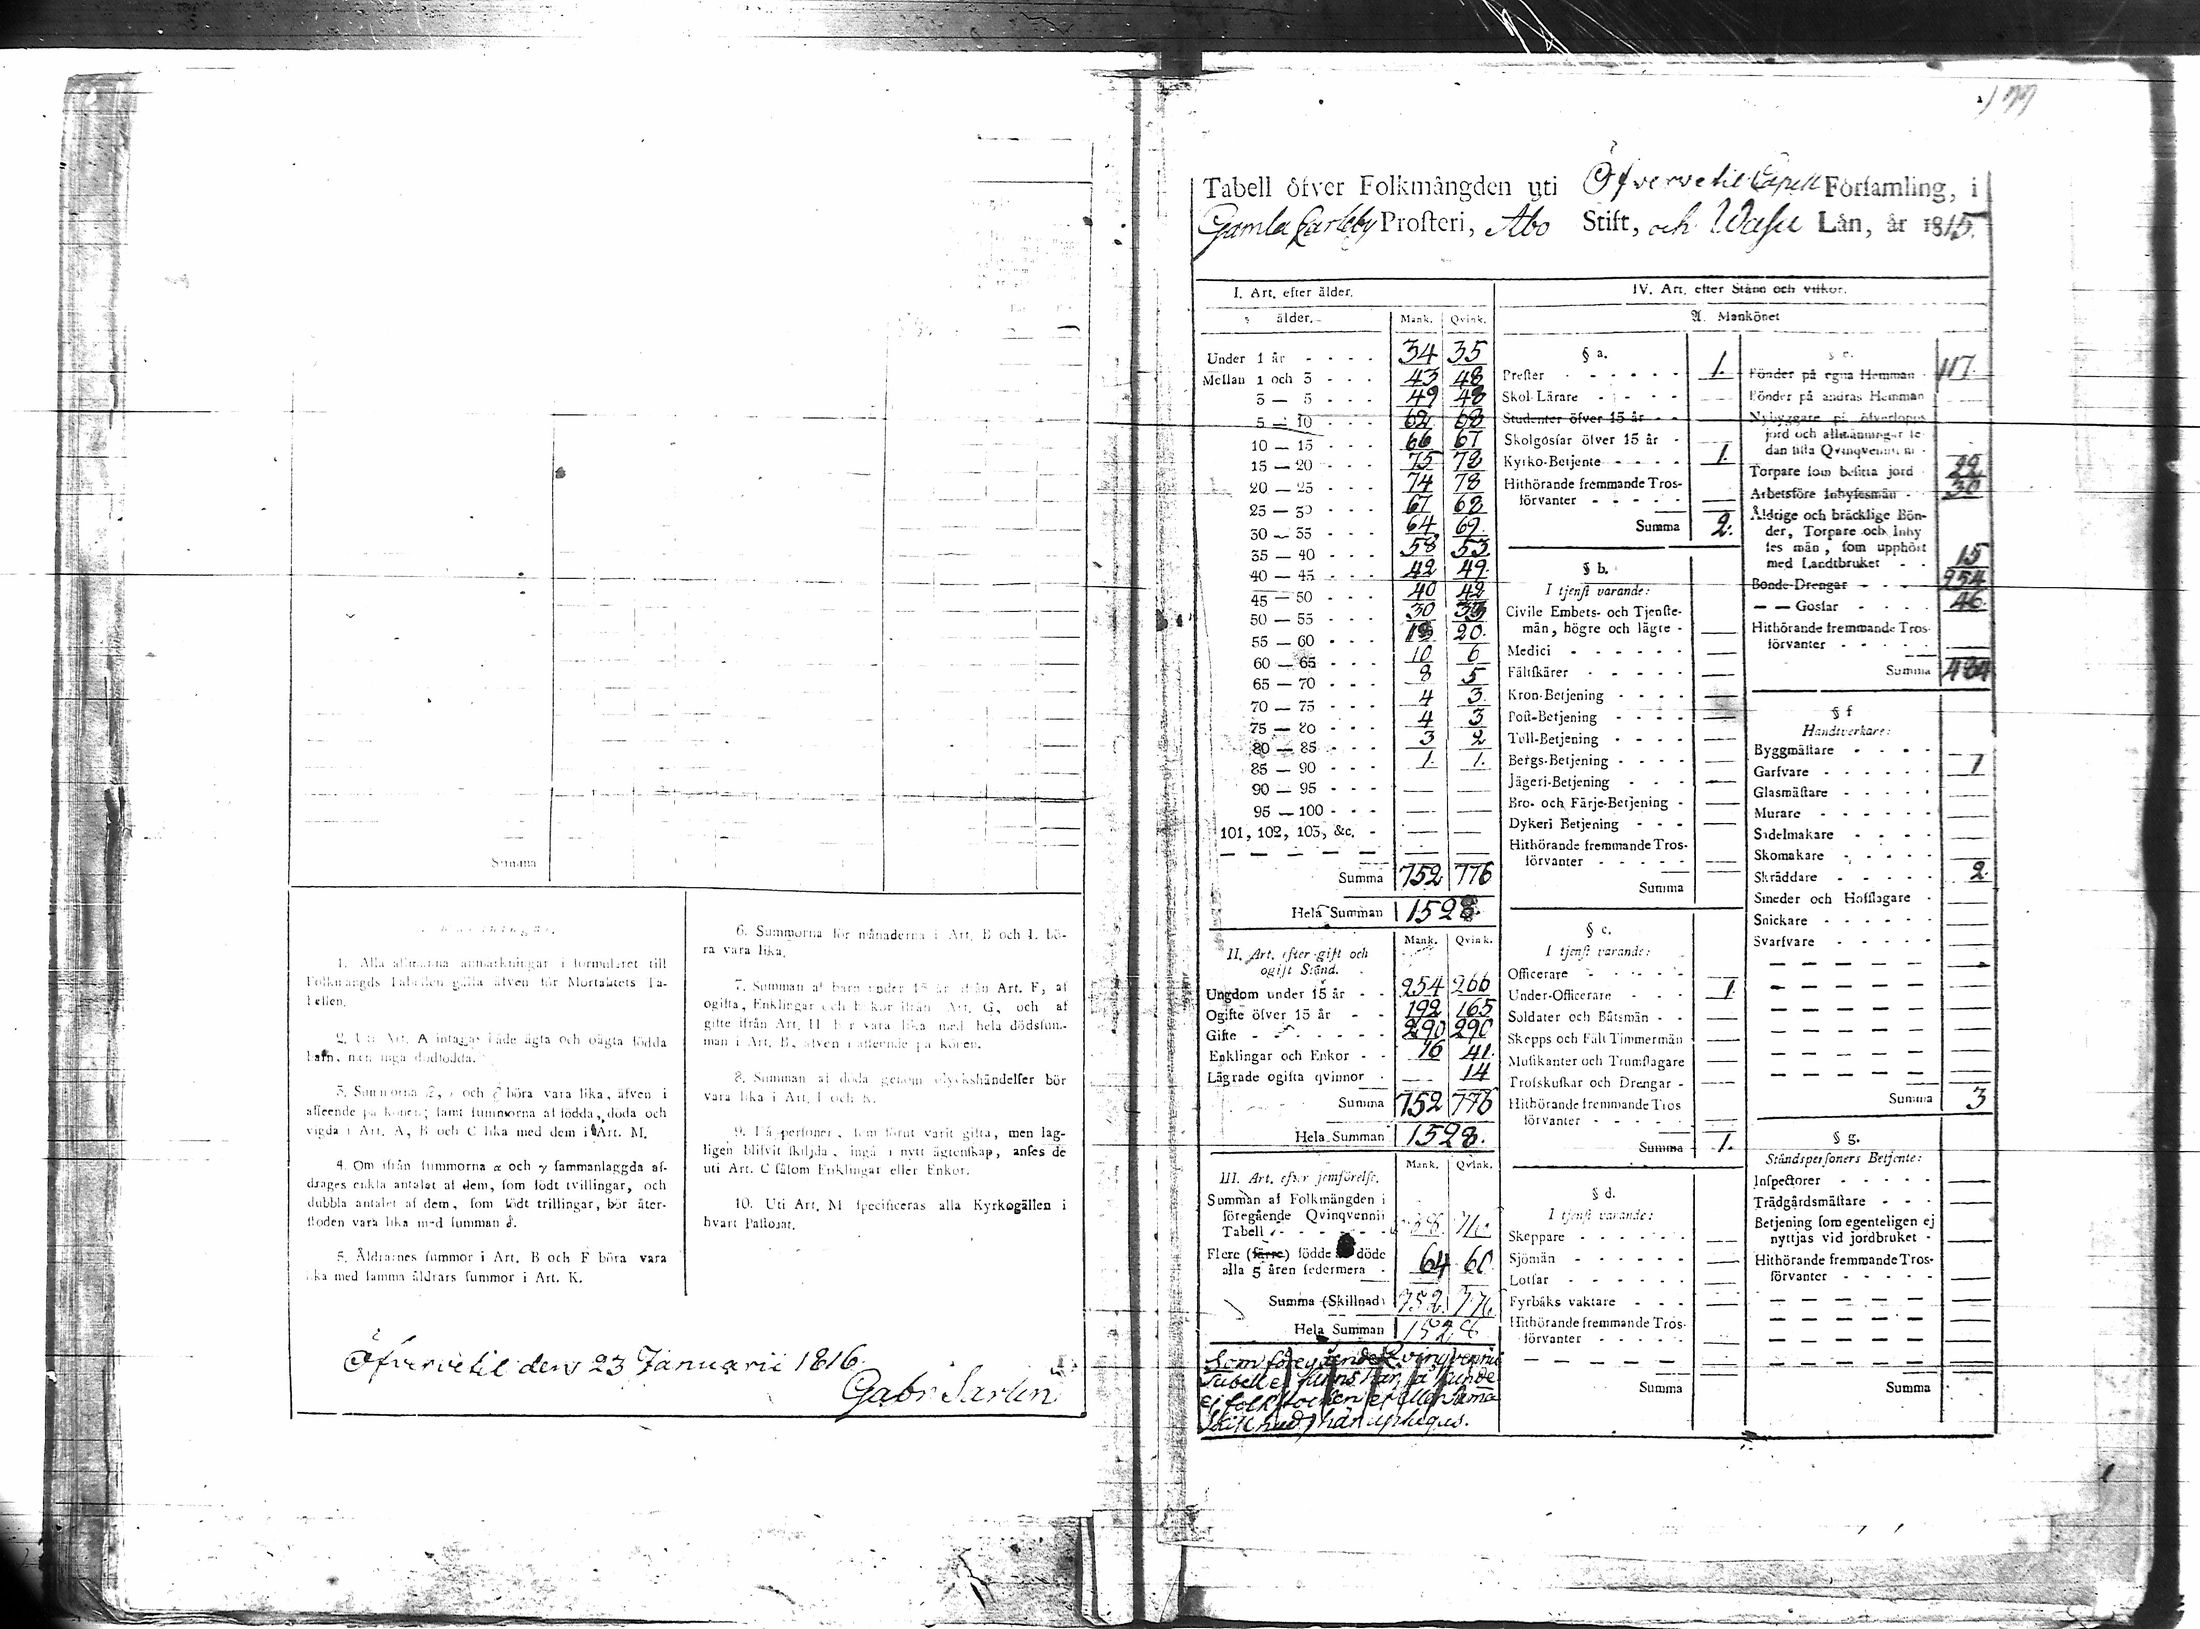 Summa
1. Alla allmänna anmärkningar i formuläret till
Folkmängds Tabellen gälla äfven för Mortalitets Ta-
bellen.
2. Uti Art. A intagas både ägta och oägta födda
barn, men inga dödfödda.
3. Summorna och böra vara lika, äfven i
afseende på könen; samt summorna af födda, döda och
vigda i Art. A, B och C lika med dem i Art. M.
4. Om ifrån summorna α och γ sammanlaggda af-
drages enkla antalet af dem, som födt tvillingar, och
dubbla antalet af dem, som födt trillingar, bör åter-
stoden vara lika med summan δ.
5. Åldrarnes summor i Art. B och F böra vara
lika med samma åldrars summor i Art. K.
6. Summorna för månaderna i Art. B och I. bö-
ra vara lika.
7. Summan af barn under 15 år ifrån Art. F, af
ogifta, Enklingar och Enkor ifrån Art. G, och af
gifte ifrån Art. H bör vara lika med hela dödssum-
man i Art. B, äfven i afseende på könen.
8. Summan af döda genom olyckshändelser bör
vara lika i Art. I och K.
9. Få personer, som förut varit gifta, men lag-
ligen blifvit skiljda, ingå i nytt ägtenskap, anses de
uti Art. C såsom Enklingar eller Enkor.
10. Uti Art. M specificeras alla Kyrkogällen i
hvart Pastorat.
Öfvervetil den 23 Januarii 1816.
Gabr Sarlin
Tabell öfver Folkmängden uti Öfvervetil Capell Församling, i
Gamla Carleby Prosteri, Abo Stift, och Wasa Län, år 1815.
I. Art. efter ålder.
ålder. Mank. Qvink.
Under 1 år 34 35
Mellan 1 och 3 43 48
3 — 5 49 48
5 — 10 62 68
10 — 15 66 67
15 — 20 75 72
20 — 25 74 78
25 — 30 67 68
30 — 35 64 69
35 — 40 58 53
40 — 45 42 49
45 — 50 40 42
50 — 55 30
55 — 60 20
60 — 65 10 6
65 — 70 8 5
70 — 75 4 3
75 — 80 4 3
80 — 85 3 2
85 — 90 1. 1.
90 — 95
95 — 100
101, 102, 103, &c.
Summa 752 776
Hela Summan 1528.
II. Art. efter gift och Mank. Qvink.
ogift Stånd.
Ungdom under 15 år 254 266
Ogifte öfver 15 år 192 165
Gifte 290 290
Enklingar och Enkor 16 41.
Lägrade ogifta qvinnor — 14
Summa 752 776
Hela Summan 1528.
III. Art. efter jemförelse. Mank. Qvink.
Summan af Folkmängden i
föregående Qvinqvennii
Tabell
Flere (färre) födde döde
alla 5 åren sedermera 64 60
Summa (Skillnad) 752 776
Hela Summan 1528
IV. Art. efter Stånd och vilkor.
A. Mankönet
§ a.
Prester 1.
Skol-Lärare
Studenter öfver 15 år
Skolgossar öfver 15 år
Kyrko-Betjente 1.
Hithörande fremmande Tros-
förvanter
Summa 2.
§ b.
I tjenst varande:
Civile Embets- och Tjenste-
män, högre och lägre
Medici
Fältskärer
Kron-Betjening
Post-Betjening
Tull-Betjening
Bergs-Betjening
Jägeri-Betjening
Bro- och Färje-Betjening
Dykeri Betjening
Hithörande fremmande Tros-
förvanter
Summa
§ c.
I tjenst varande:
Officerare
Under-Officerare 1.
Soldater och Båtsmän
Skepps och Fält Timmermän
Musikanter och Trumslagare
Trosskuskar och Drengar
Hithörande fremmande Tros
förvanter
Summa 1.
§ d.
I tjenst varande:
Skeppare
Sjömän
Lotsar
Fyrbåks vaktare
Hithörande fremmande Tros-
förvanter
Summa
§ e.
Bönder på egna Hemman 117.
Bönder på andras Hemman
Nybyggare på öfverlopps
jord och allmänningar se-
dan sista Qvinqvennium
Torpare som besitta jord 22
Arbetsföre Inhysesmän 30
Åldrige och bräcklige Bön-
der, Torpare och Inhy
ses män, som upphört
med Landtbruket 15
Bonde-Drengar 254
— — Gossar 46.
Hithörande fremmande Tros-
förvanter
Summa 484
§ f
Handtverkare:
Byggmästare
Garfvare 1
Glasmästare
Murare
Sadelmakare
Skomakare
Skräddare 2.
Smeder och Hofslagare
Snickare
Svarfvare
Summa 3
§ g.
Ståndspersoners Betjente:
Inspectorer
Trädgårdsmästare
Betjening som egenteligen ej
nyttjas vid jordbruket
Hithörande fremmande Tros-
förvanter
Summa